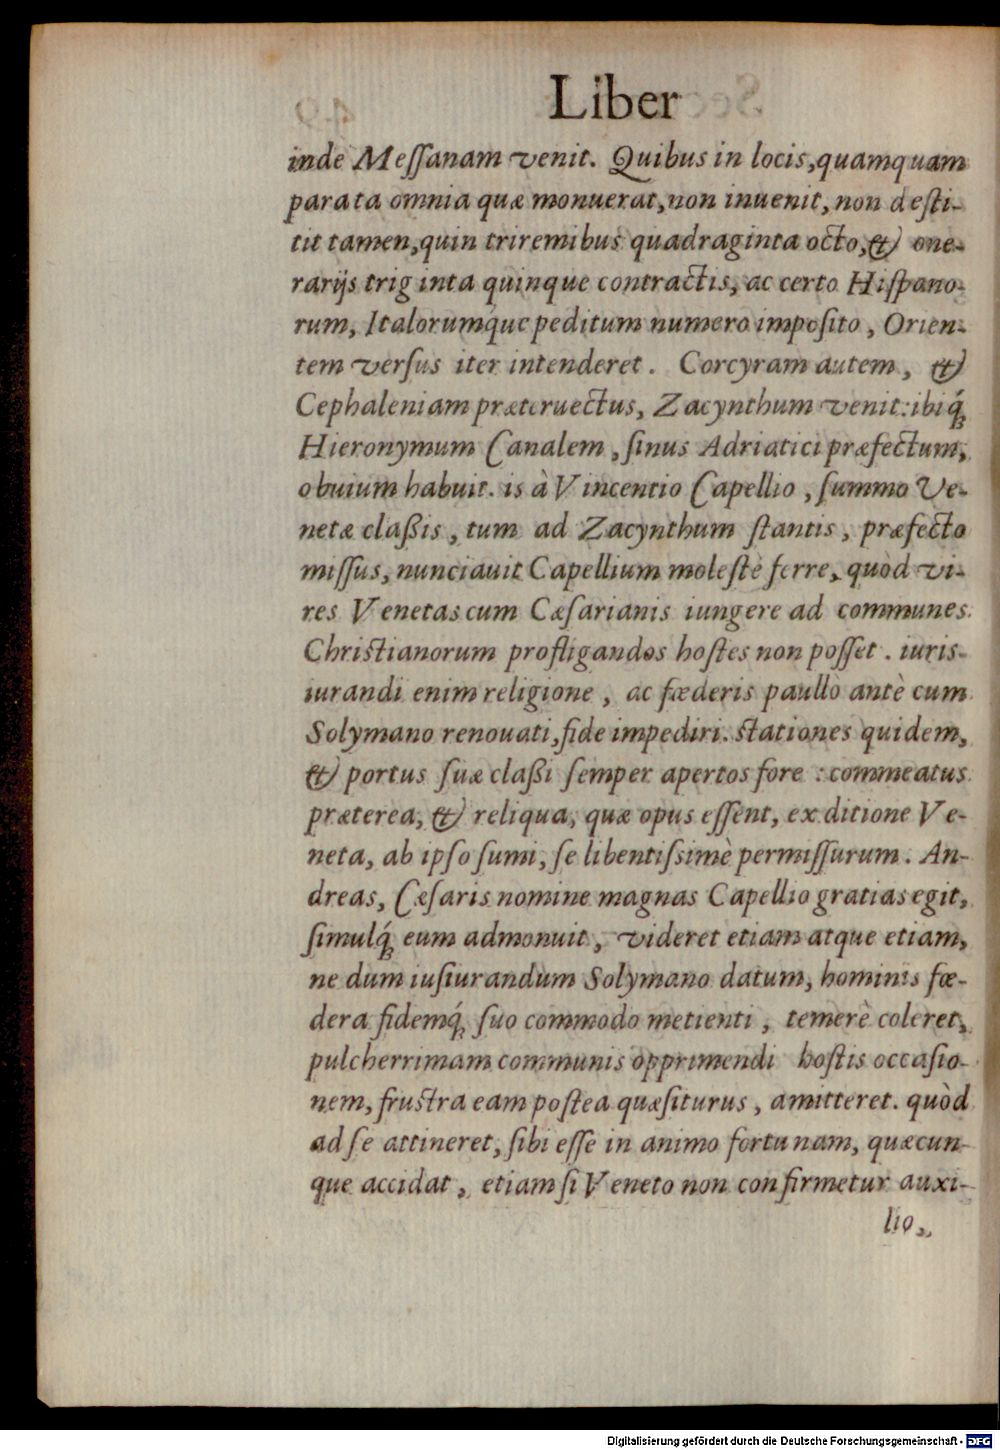 Liber
inde Meſſanam venit. Quibus in locis,quamquam
parata omnia quæ monuerat,non inuenit, non deſti-
tit tamen,quin triremibus quadraginta octo,& one-
rarijs triginta quinque contractis, ac certo Hiſpano-
rum, Italorumq́ue peditum numero impoſito, Orien-
tem verſus iter intenderet. Corcyram autem, &
Cephaleniam præteruectus, Zacynthum venit: ibiq́;
Hieronymum Canalem, ſinus Adriatici præfectum,
obuium habuit. is à Vincentio Capellio, ſummo Ve-
netæ claßis, tum ad Zacynthum ſtantis, præfecto
miſſus, nunciauit Capellium moleſtè ferre, quòd vi-
res Venetas cum Cæſarianis iungere ad communes
Chriſtianorum profligandos hoſtes non poſſet. iuris-
iurandi enim religione, ac fœderis paullò antè cum
Solymano renouati,fide impediri. ſtationes quidem,
& portus ſuæ claßi ſemper apertos fore : commeatus
præterea, & reliqua, quæ opus eſſent, ex ditione Ve-
neta, ab ipſo ſumi, ſe libentiſsimè permiſſurum. An-
dreas, Cæſaris nomine magnas Capellio gratias egit,
ſimulq́; eum admonuit, videret etiam atque etiam,
ne dum iuſiurandum Solymano datum, hominis fœ-
dera fidemq́; ſuo commodo metienti, temerè coleret,
pulcherrimam communis opprimendi hoſtis occaſio-
nem, fruſtra eam poſtea quæſiturus, amitteret. quòd
ad ſe attineret, ſibi eſſe in animo fortunam, quæcun-
que accidat, etiam ſi Veneto non confirmetur auxi-
lio,
Digitalisierung gefördert durch die Deutsche Forschungsgemeinschaft - DFG